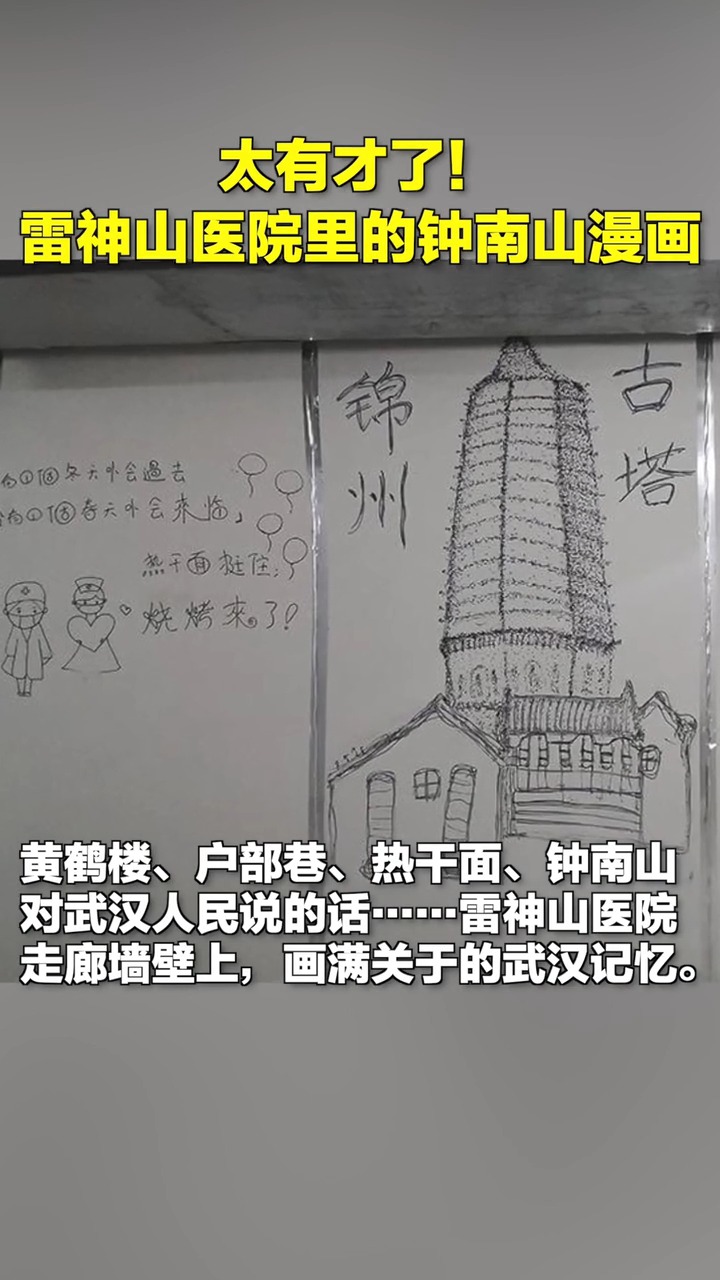 太有才了！
雷神山医院里的钟南山漫画
個冬天不会過去
個春天不会来临」
热干面挺住；
烧烤來了！
锦州
古塔
黄鹤楼、户部巷、热干面、钟南山
对武汉人民说的话……雷神山医院
走廊墙壁上，画满关于的武汉记忆。